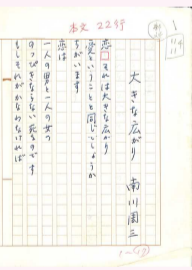 本文 22行
大きな広がり
南川周三
恋 それは大きな広がり
愛ということと同じでしょうか
ちがいます
恋は
一人の男と一人の女の
のっぴきならない死なのです
もしそれがかなわなければ